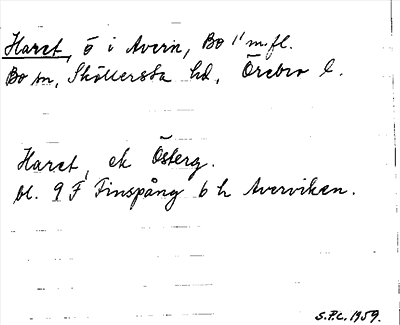 Haret, ö i Avern, Bo 1¹ m.fl.
Bo sn, Sköllersta hd, Örebro l.
Haret, ek Österg.
bl. 9 F Finspång 6 h Averviken.
S.P.C. 1959.